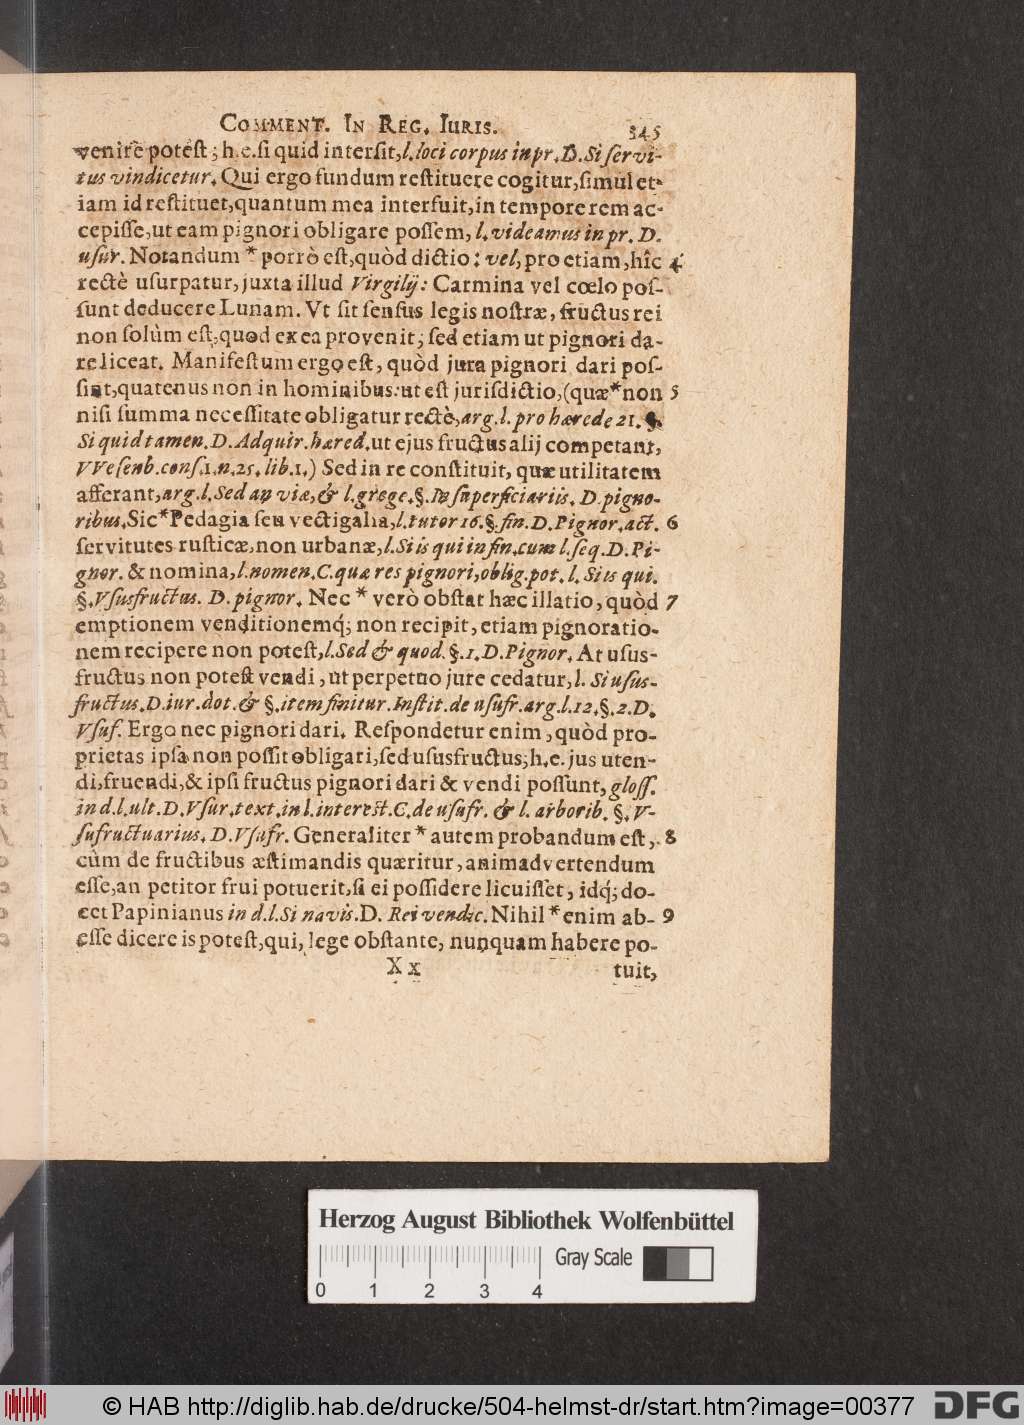 COMMENT. IN REG. IURIS. 345
venire potest; h.e. si quid intersit, l. loci corpus in pr. D. Si servi-
tus vindicetur. Qui ergo fundum restituere cogitur, simul et-
iam id restituet, quantum mea interfuit, in tempore rem ac-
cepisse, ut eam pignori obligare possem, l. videamus in pr. D.
usur. Notandum * porrò est, quòd dictio: vel, pro etiam, hîc 4
rectè usurpatur, juxta illud Virgilij: Carmina vel cœlo pos-
sunt deducere Lunam. Vt sit sensus legis nostræ, fructus rei
non solùm est, quod ex ea provenit; sed etiam ut pignori da-
re liceat. Manifestum ergo est, quòd jura pignori dari pos-
sint, quatenus non in hominibus: ut est jurisdictio, (quæ * non 5
nisi summa necessitate obligatur rectè, arg. l. pro hærede 21. §.
Si quid tamen. D. Adquir. hæred. ut ejus fructus alij competant,
VVesenb. cons. 1. n. 25. lib. 1.) Sed in re constituit, quæ utilitatem
afferant, arg. l. Sed an viæ, & l. grege. §. In superficiariis. D. pigno-
ribus. Sic * Pedagia seu vectigalia, l. tutor 16. §. fin. D. Pignor. act. 6
servitutes rusticæ, non urbanæ, l. Si is qui in fin. cum l. seq. D. Pi-
gnor. & nomina, l. nomen. C. quæ res pignori, oblig. pot. l. Si is qui.
§. Vsusfructus. D. pignor. Nec * verò obstat hæc illatio, quòd 7
emptionem venditionemq́; non recipit, etiam pignoratio-
nem recipere non potest, l. Sed & quod. §. 1. D. Pignor. At usus-
fructus non potest vendi, ut perpetuo jure cedatur, l. Si usus-
fructus. D. iur. dot. & §. item finitur. Instit. de usufr. arg. l. 12. §. 2. D.
Vsuf. Ergo nec pignori dari. Respondetur enim, quòd pro-
prietas ipsa non possit obligari, sed ususfructus; h.e. jus uten-
di, fruendi, & ipsi fructus pignori dari & vendi possunt, gloss.
in d. l. ult. D. Vsur. text. in l. interest. C. de usufr. & l. arborib. §. V-
sufructuarius. D. Vsufr. Generaliter * autem probandum est, 8
cùm de fructibus æstimandis quæritur, animadvertendum
esse, an petitor frui potuerit, si ei possidere licuisset, idq́; do-
cet Papinianus in d. l. Si navis. D. Rei vendic. Nihil * enim ab- 9
esse dicere is potest, qui, lege obstante, nunquam habere po-
X x tuit,
Herzog August Bibliothek Wolfenbüttel
Gray Scale
0 1 2 3 4
© HAB http://diglib.hab.de/drucke/504-helmst-dr/start.htm?image=00377
DFG